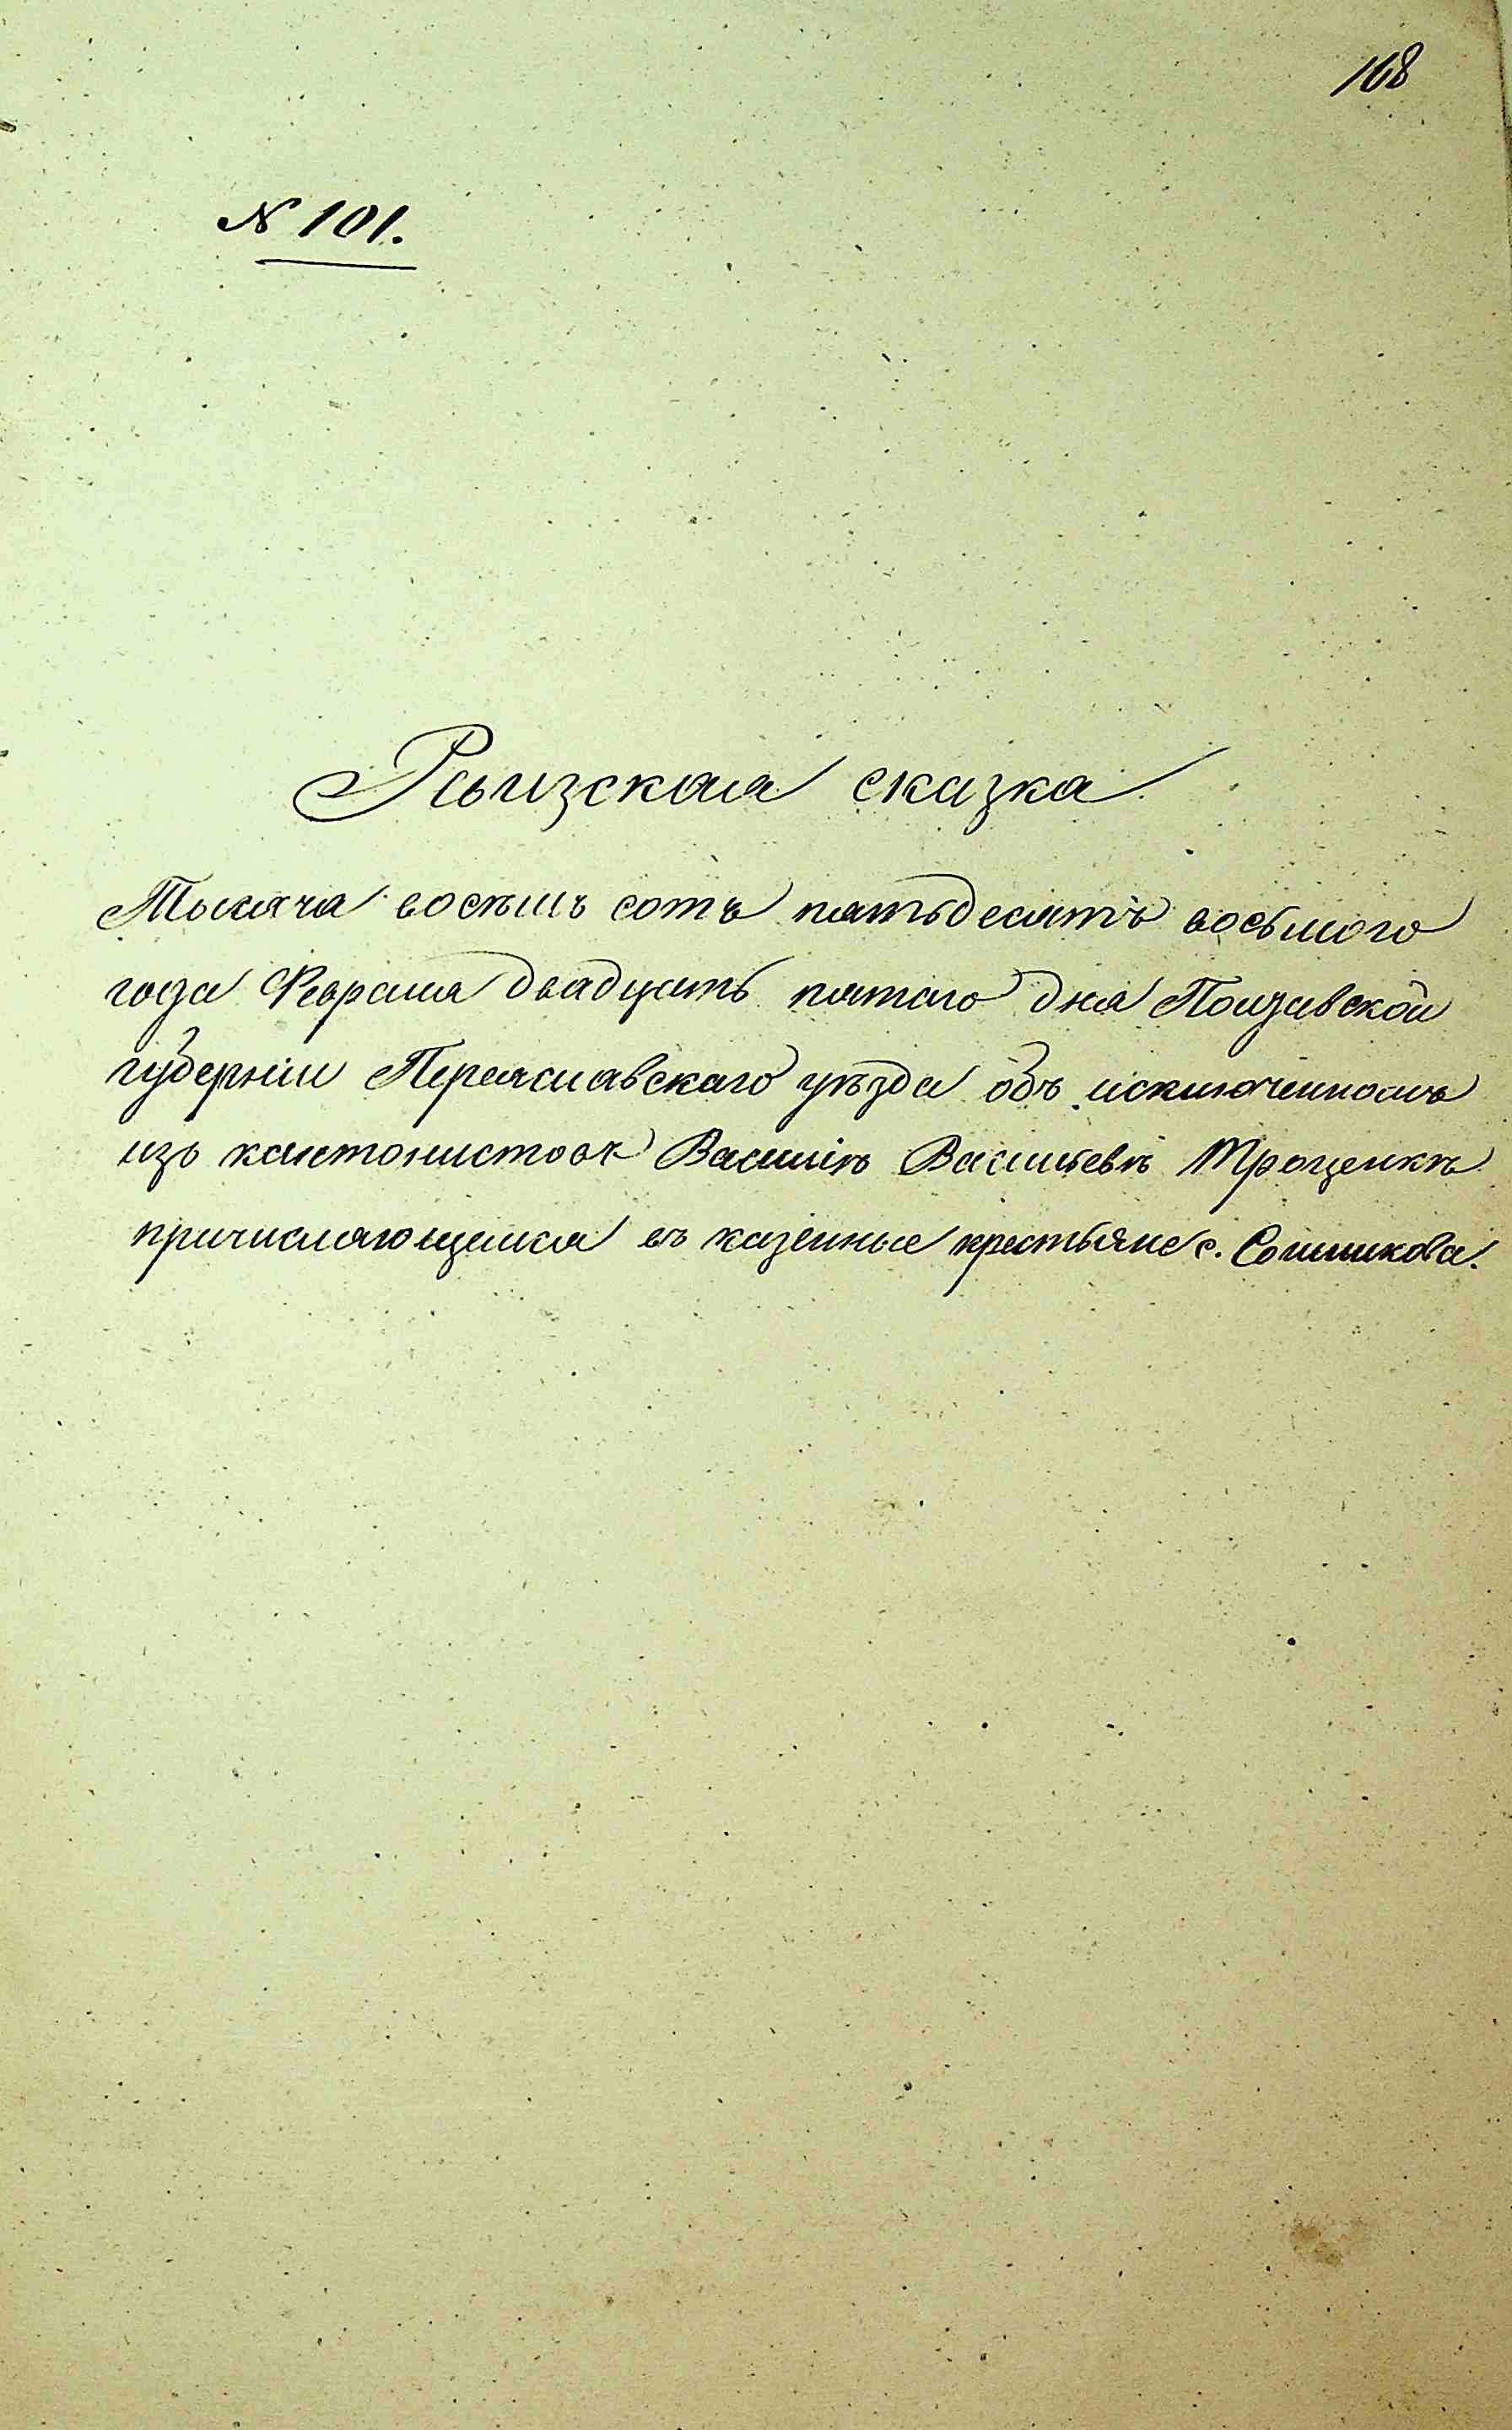 168
№ 101.
Ревизская сказка
Тысяча восѣмь сотъ пятьдесятъ восьмого
года Февраля двадцать пятаго дня Полтавской
губерніи Переяславскаго уѣзда объ исключенномъ
изъ кантонистовъ Василіѣ Васильевѣ Троценкѣ
причисляющемся въ казенные крестьяне с. Сошникова.